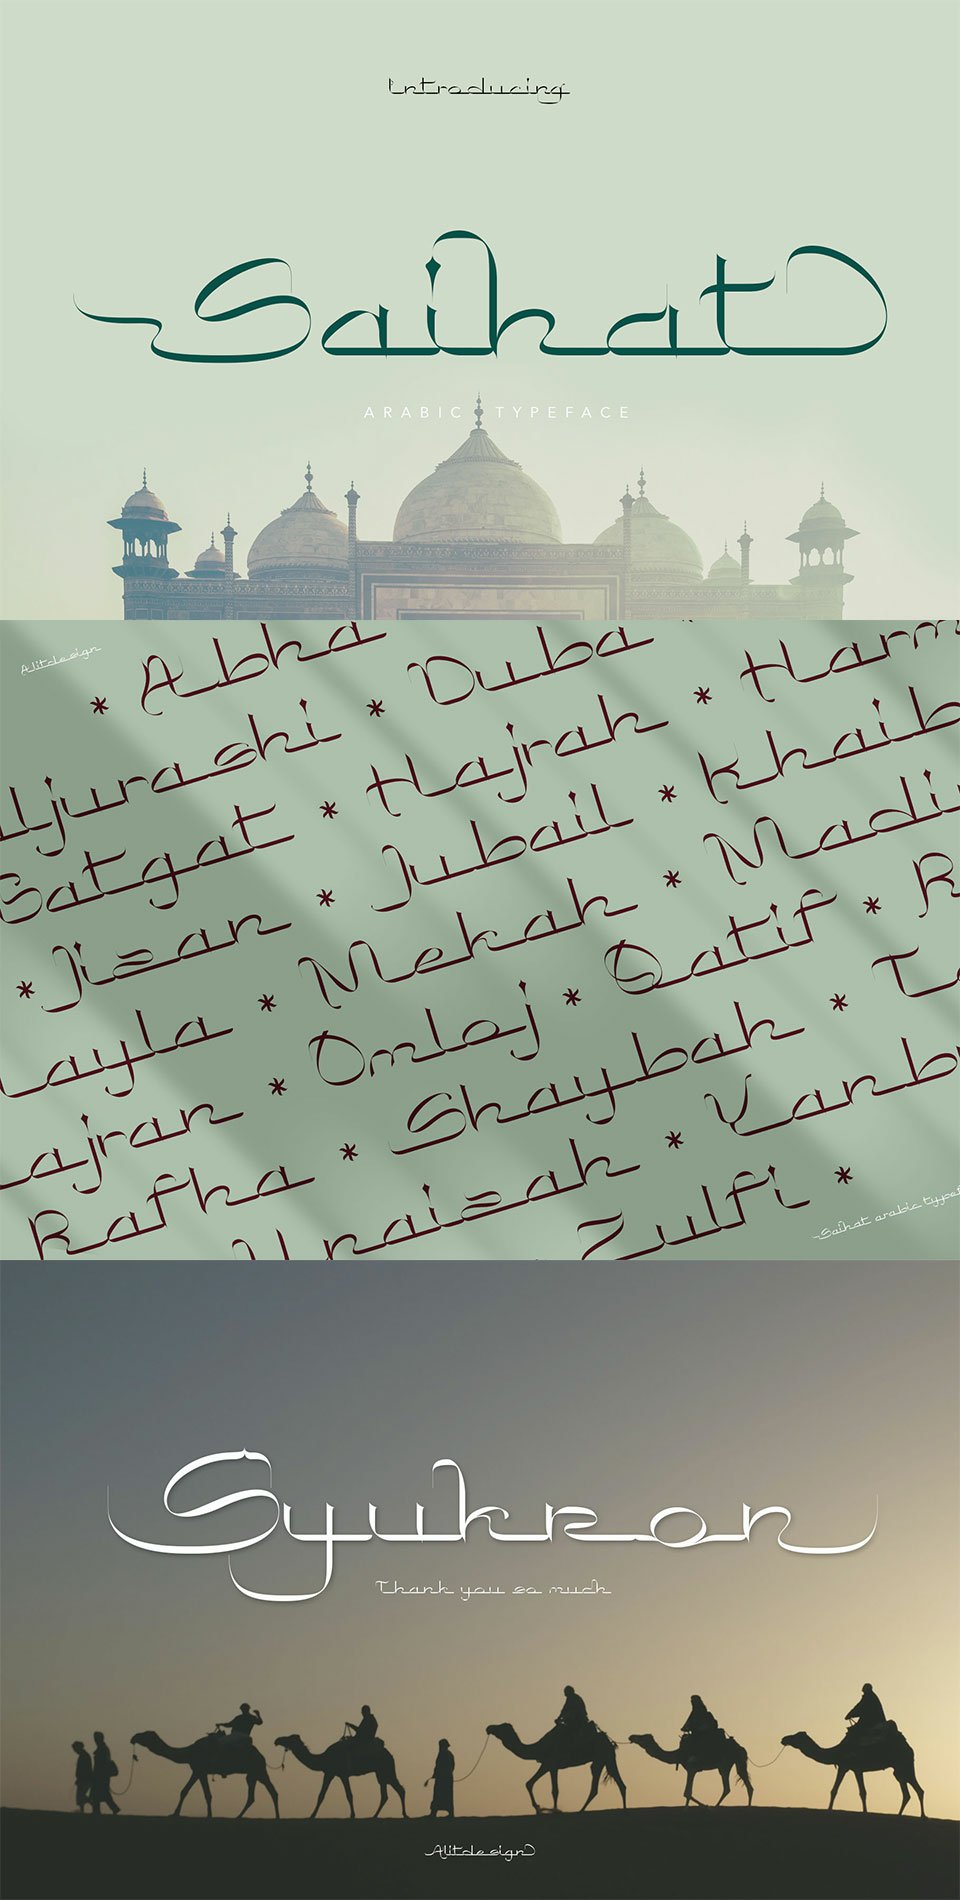 Introducing
Saihat
ARABIC TYPEFACE
Alitdesign
* Abha * Duba * Harm
aljurashi * Hajrah * Khaib
Satgat * Jubail * Madi
* Jizan * Mekah * Qatif * R
Layla * Omloj * Shaybah * Ta
ajran * Shaybah * Yanb
Rafha * Unaizah * Zulfi *
Saihat arabic typef
Syukron
Thank you so much
Alitdesign